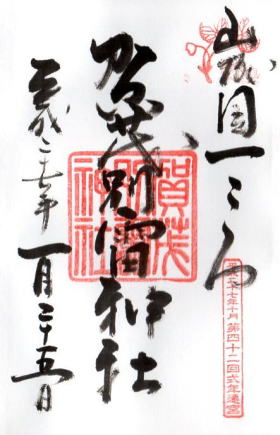 山城国一之宮
賀茂別雷神社
平成二十七年 一月二十五日
平成二十七年十月 第四十二回式年遷宮